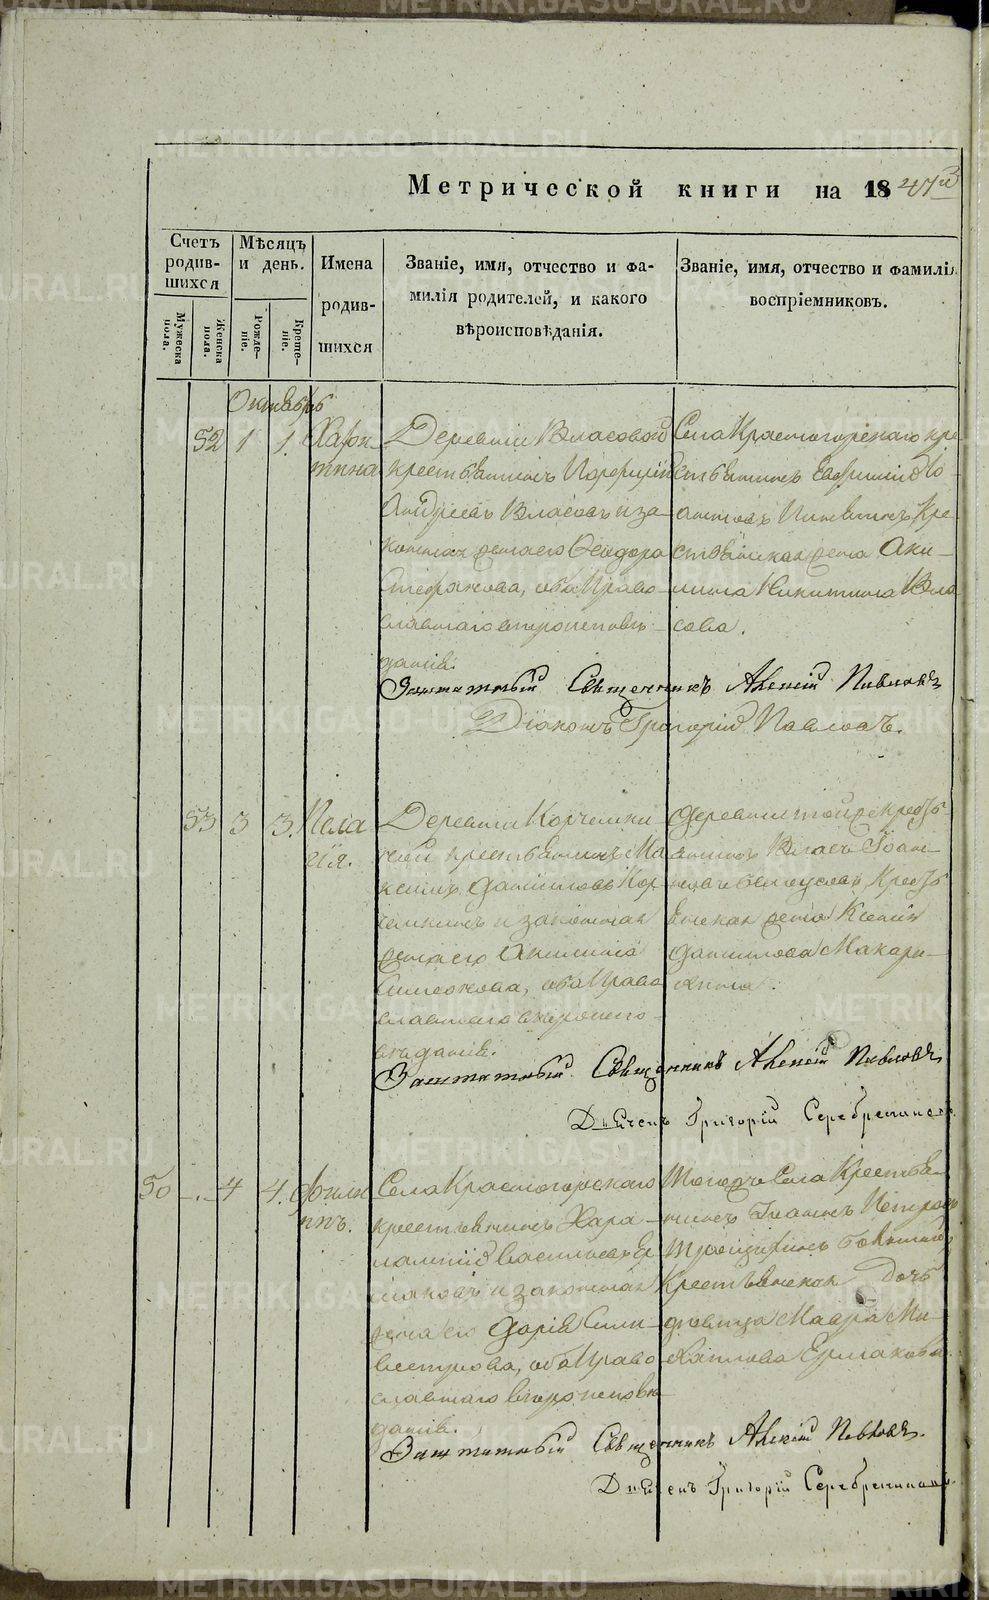 METRIKI.GASO-URAL.RU
Метрической книги на 1847й
Счетъ родив-шихся
Мѣсяцъ и день.
Имена родив-шихся
Званіе, имя, отчество и фа-
милія родителей, и какого
вѣроисповѣданія.
Званіе, имя, отчество и фамилія
воспріемниковъ.
Мужеска пола.
Женска пола.
Рожде-ніе.
Креще-ніе.
Октябрь
52 1 1. Хари-
тина
Деревни Власовой
крестьянинъ Порфирій
Андреевъ Власовъ и за-
конная жена его Ѳеодора
Стефанова, оба Право-
славнаго вѣроисповѣ-
данія.
Села Красногорскаго кре-
стьянинъ Евфимій Ио-
анновъ кре-
стьянская жена Аки-
лина Никитина Вла
сова.
Заштатный Священникъ Алексій Павловъ
Діаконъ Григорій Павловъ.
53 3 3. Пела
гія.
Деревни Корчемки
ной крестьянинъ Ма
ксимъ Даниловъ Кор-
чемкинъ и законная
жена его Акилина
Симеонова, оба Право
славнаго вѣроиспо-
вѣданія.
Деревни тойже кресть
янинъ Власъ Іоан-
новъ Белоусовъ Кресть
янская жена Ксенія
Данилова Макару-
хина.
Заштатный Священникъ Алексій Павловъ
Дьячекъ Григорій Серебрениковъ
50 -.- 4 4. Филип
пъ.
Села Красногорскаго
крестьянинъ Хара-
лампій Васильевъ Ер
маковъ и законная
жена его Дарія Сили-
вестрова, оба Право
славнаго вѣроисповѣ
данія.
Тогоже Села Крестья-
нинъ Іоаннъ Петровъ
Крестьянская дочь
дѣвица Мавра Ми-
хайлова Ермакова.
Заштатный Священникъ Алексій Павловъ.
Дьячекъ Григорій Серебрениковъ.